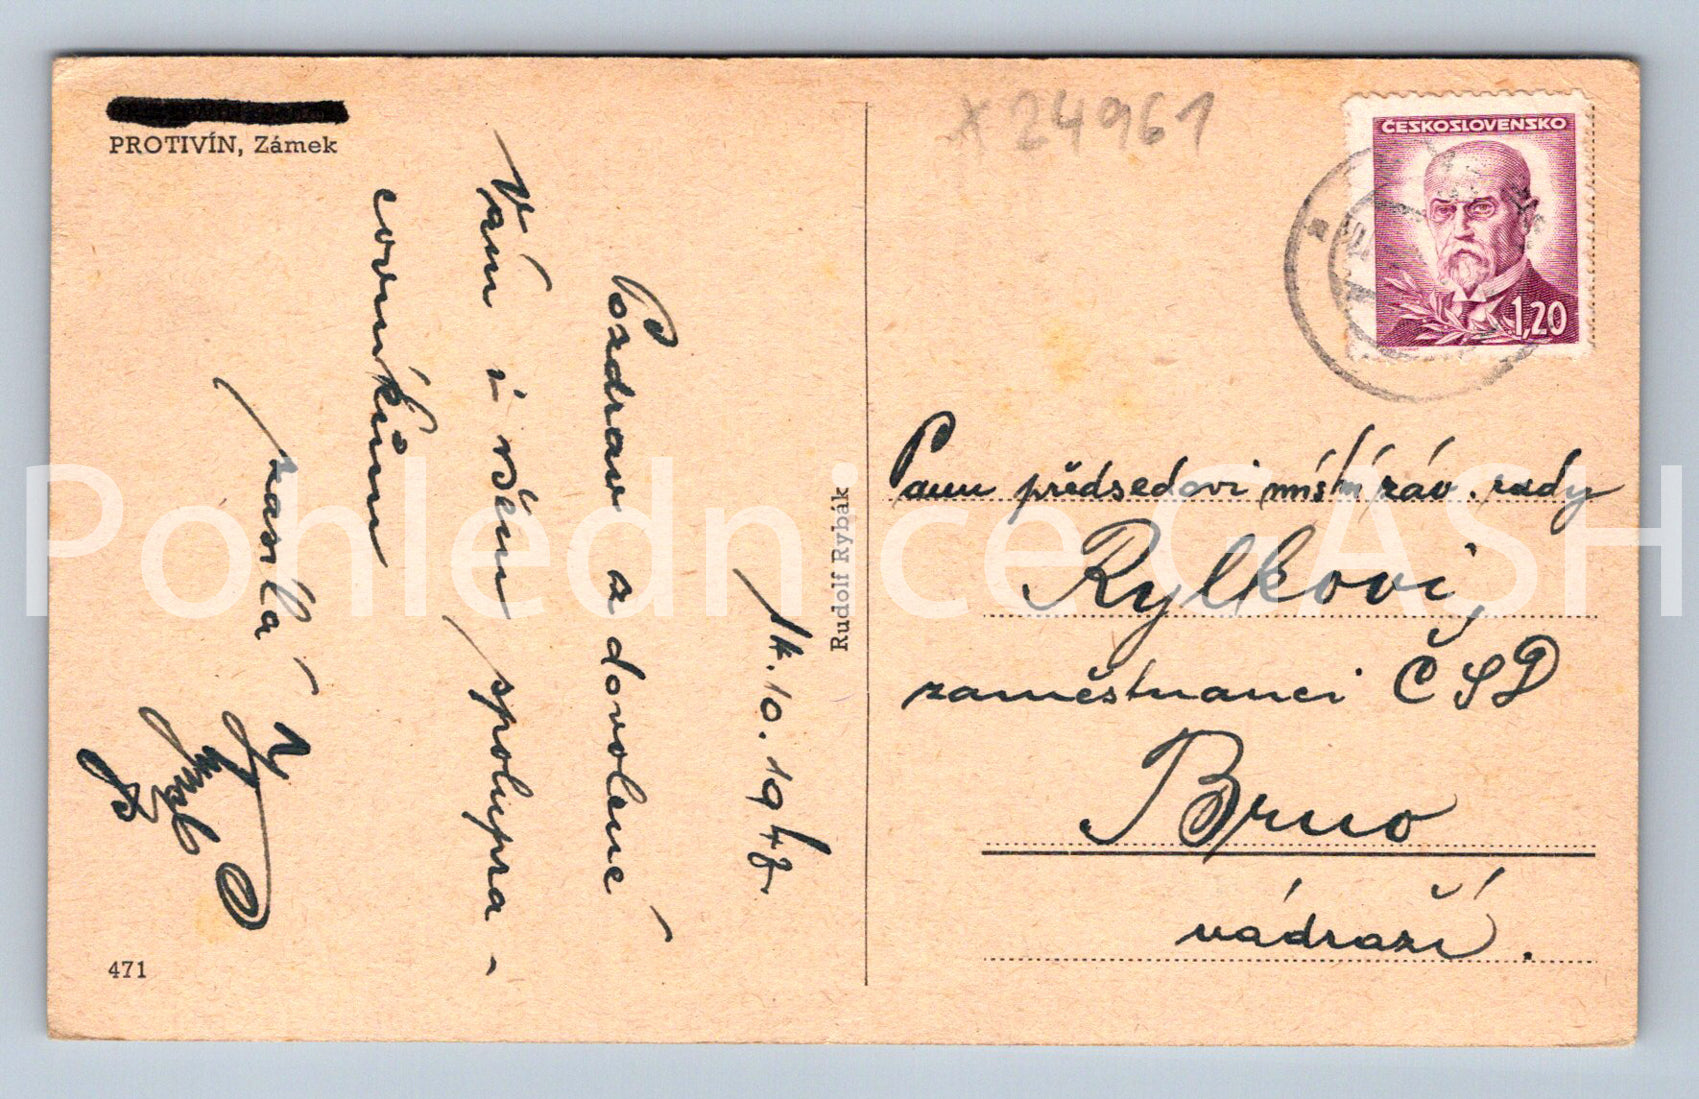 PROTIVÍN, Zámek
14.10.1947.
Pozdrav z dovolené
Vám i všem spolupra-
covníkům
zasílá
471
Rudolf Rybák
x 24961
ČESKOSLOVENSKO
1,20
Panu předsedovi místní záv. rady
Rylkovi,
zaměstnanci ČSD
Brno
nádraží.
Pohlednice GASH